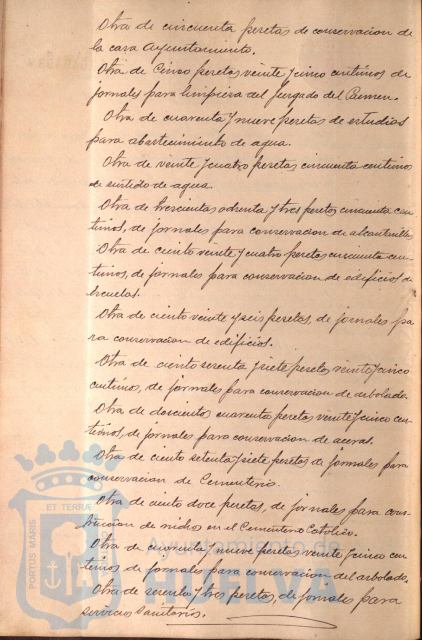 Otra de cincuenta pesetas de conservacion de
la casa Ayuntamiento.
Otra de Cinco pesetas veinte y cinco centimos de
jornales para limpieza del Juzgado del Carmen.
Otra de cuarenta y nueve pesetas de estudios
para abastecimiento de agua.
Otra de veinte y cuatro pesetas cincuenta centimos
de surtido de agua.
Otra de trescientas ochenta y tres pesetas cincuenta cen-
timos, de jornales para conservacion de alcantarillas
Otra de ciento veinte y cuatro pesetas cincuenta cen-
timos, de jornales para conservacion de edificios de
Escuelas.
Otra de ciento veinte y seis pesetas, de jornales pa
ra conservacion de edificios.
Otra de ciento sesenta y siete pesetas veinte y cinco
centimos, de jornales para conservacion de arbolado.
Otra de doscientas cuarenta pesetas veinte y cinco cen-
timos, de jornales para conservacion de aceras.
Otra de ciento setenta y siete pesetas de jornales para
conservacion de Cementerio.
Otra de ciento doce pesetas, de jornales para cons-
truccion de nichos en el Cementerio Catolico.
Otra de cuarenta y nueve pesetas veinte y cinco cen-
timos de jornales para conservacion del arbolado.
Otra de sesenta y tres pesetas, de jornales para
servicios sanitarios.
PORTUS MARIS
ET TERRÆ
Ayuntamiento de
HUELVA